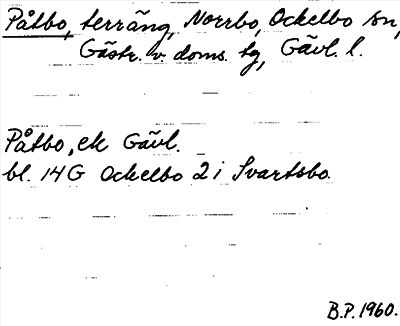 Påtbo, terräng, Norrbo, Ockelbo sn,
Gästr. v. doms. tg, Gävl. l.
Påtbo, ek Gävl.
bl. 14G Ockelbo 2 i Svartsbo.
B.P. 1960.